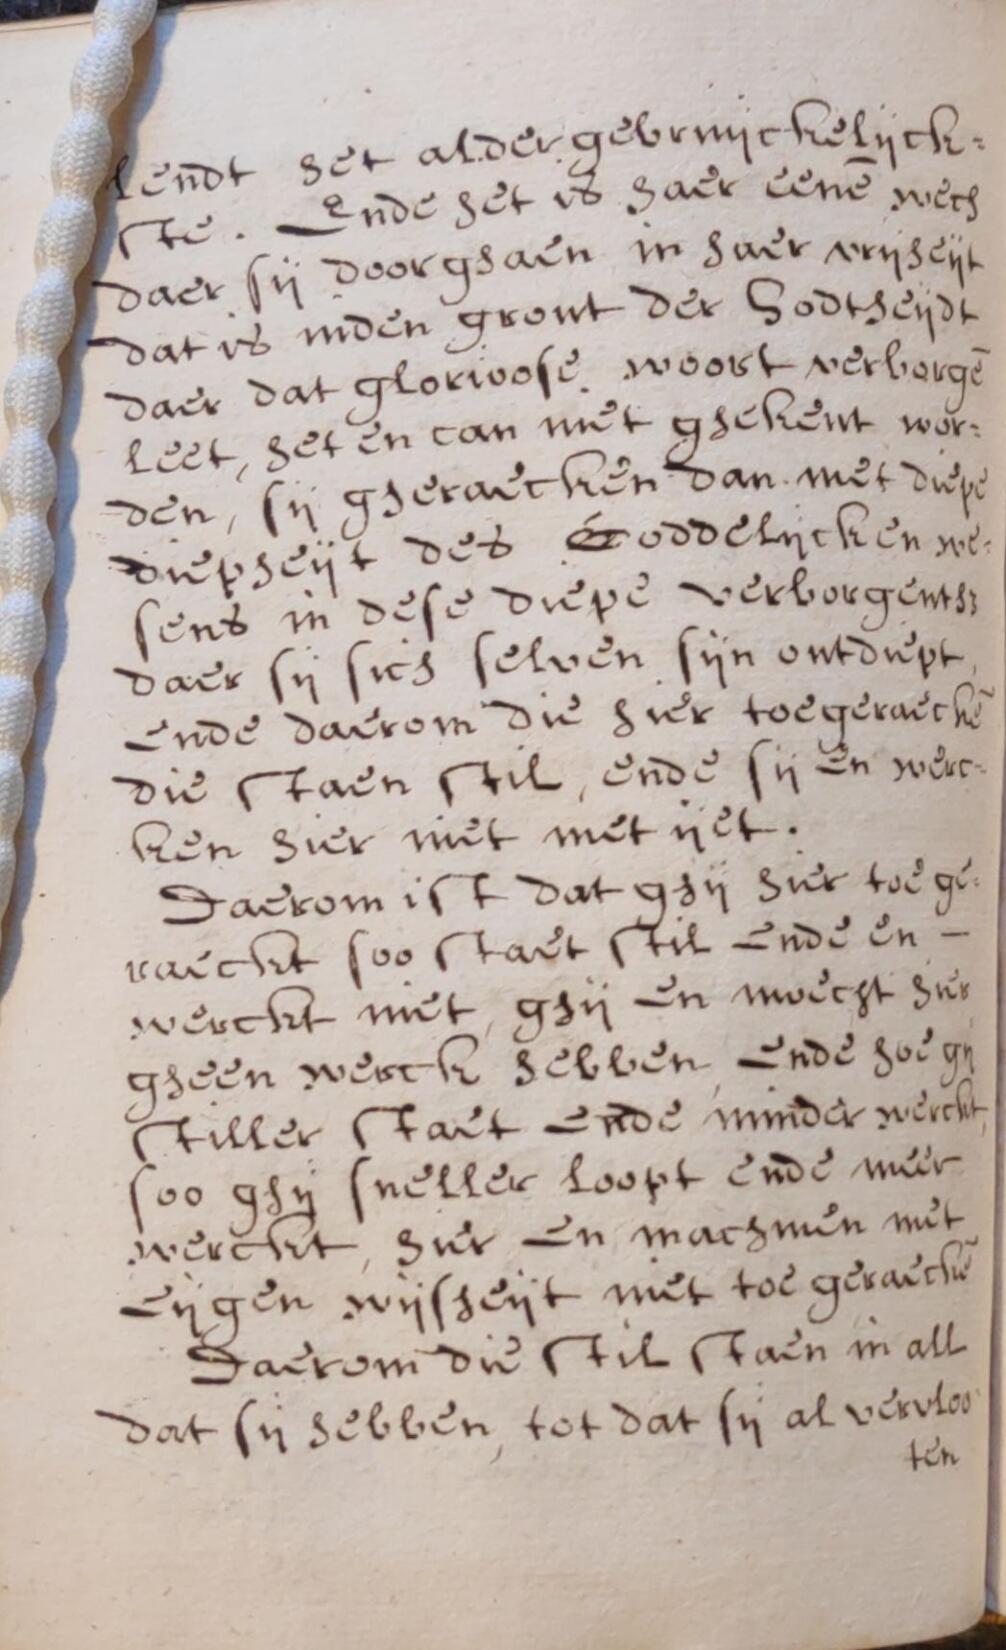 lendt het alder gebruijckelijck=
ste. Ende het is haer eenē wech
daer sij doorghaen in haer vrijheijt
dat is inden gront der Godtheijdt
daer dat glorioose woort verborgē
leet, het en can niet ghekent wor=
den, sij gheraecken dan met diepe
diepheijt des Goddelijcken we=
sens in dese diepe verborgenth3
daer sij sich selven sijn ontdiept,
Ende daerom die hier toegeraeckē
die staen stil, ende sij En werc=
ken hier niet met ijet.
Daerom ist dat ghij hier toe ge=
raeckt soo staet stil Ende en —
werckt niet, ghij En moecht hier
gheen werck hebben, Ende hoe gij
stiller staet Ende minder werckt,
soo ghij sneller loopt ende meer
werckt, hier En machmen met
Eijgen wijsheijt niet toe geraeckē
Daerom die stil staen in all
dat sij hebben, tot dat sij al vervloo
ten